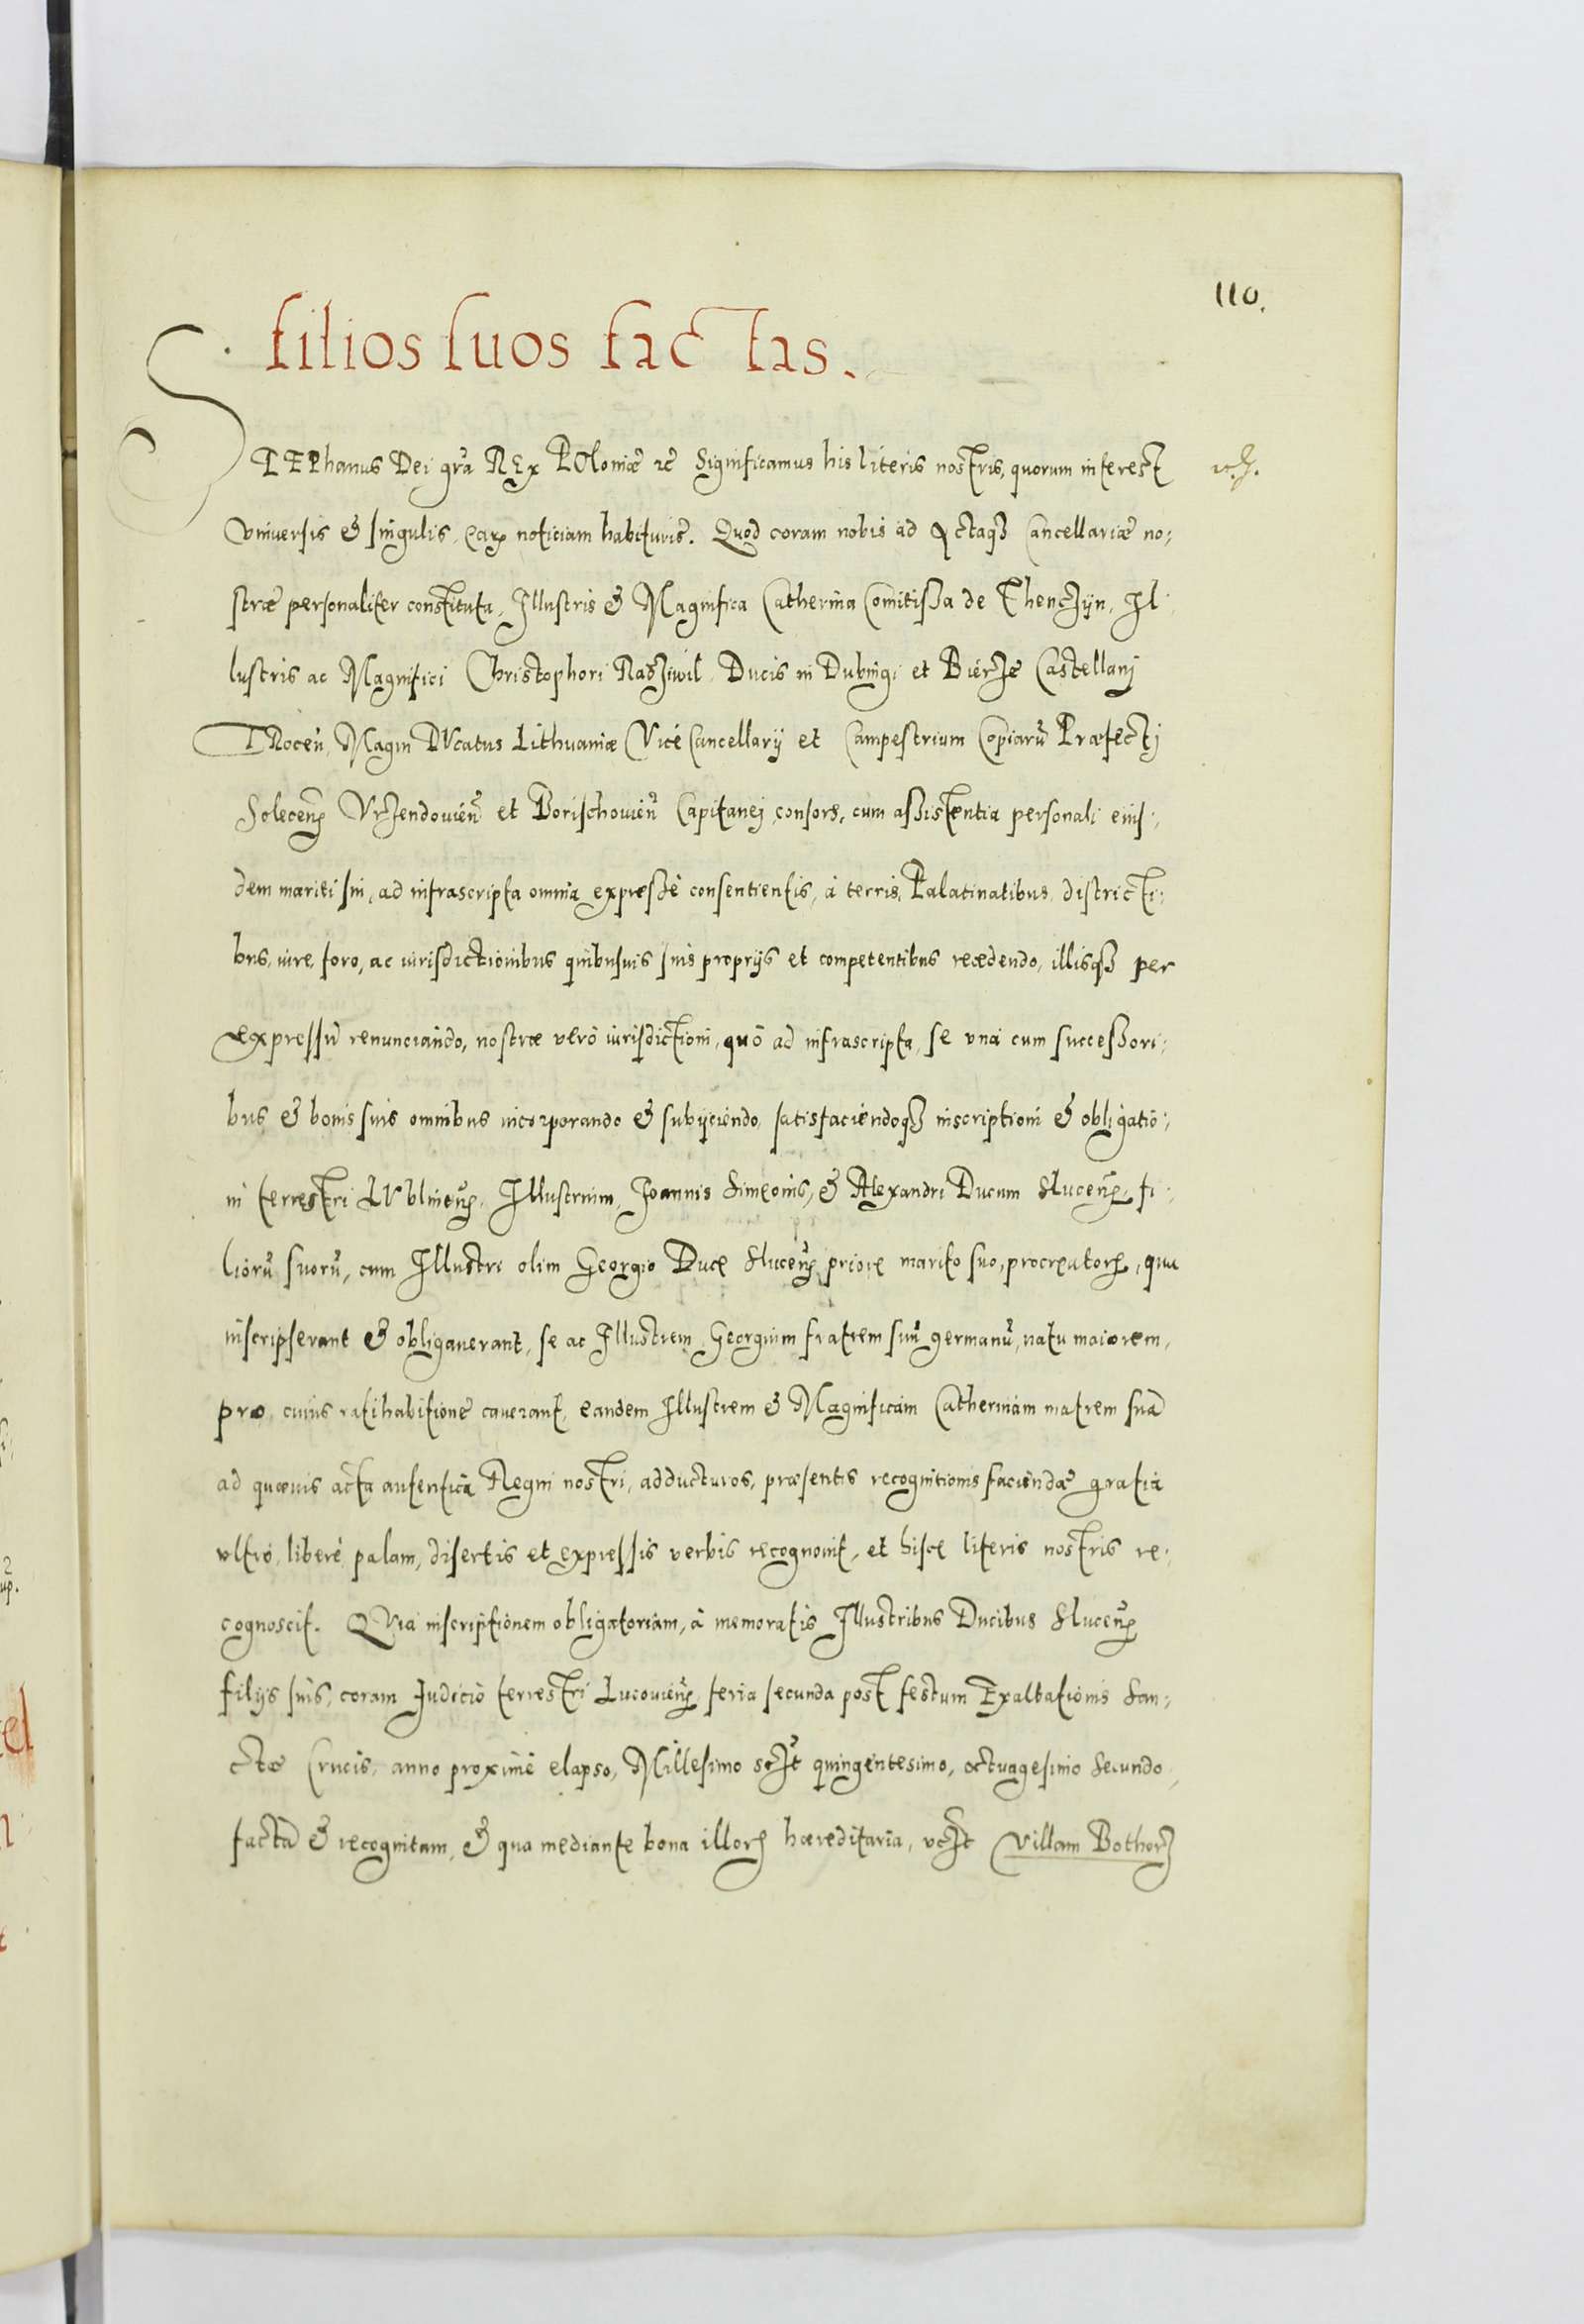 110.
filios suos factas.
STEPhanus Dei grã REx POloniæ ꝛc̃ Significamus his literis nostris, quorum interest
Vniversis & singulis, earꝝ noticiam habituris. Quod coram nobis ad Actaqꝫ Cancellariæ no:
stræ personaliter constituta, Illustris & Magnifica Catherina Comitissa de Thenczijn, Il:
lustris ac Magnifici Christophori Radziwil Ducis in Dubingi et Bierze Castellanj
TRoceñ, Magni DVcatus Lithuaniæ Vice Cancellarij et Campestrium Copiarũ Præfectj
Soleceñ Vrzendouieñ et Borischouieñ Capitanej consors, cum assistentia personali eius:
dem mariti sui, ad infrascripta omnia expresse consentientis, à terris, Palatinatibus, districti:
bus, iure, foro, ac iurisdictionibus quibusuis suis proprijs et competentibus recedendo, illisqꝫ per
expressũ renunciando, nostræ verò iurisdictioni, quò ad infrascripta, se vnà cum successori:
bus & bonis suis omnibus incorporando & subijciendo, satisfaciendoqꝫ inscriptioni & obligatiõ:
in terrestri LVblineñ, Illustrium, Joannis Simeonis, & Alexandri Ducum Sluceñ, fi:
liorũ suorũ, cum Illustri olim Georgio Duce Sluceñ priore marito suo, procreatorꝝ, qua
inscripserant & obligauerant, se ac Illustrem Georgium fratrem suũ germanũ, natu maiorem,
pro cuius ratihabitione cauerant, eandem Illustrem & Magnificam Catherinam matrem suã
ad quæuis acta autentica Regni nostri, adducturos, præsentis recognitionis faciendæ gratia
vltrò, liberè, palam, disertis et expressis verbis recognouit, et hisce literis nostris re:
cognoscit. QVia inscriptionem obligatoriam, à memoratis Illustribus Ducibus Sluceñ
filijs suis, coram Judicio terrestri Lucouieñ, feria secunda post festum Exaltationis San:
ctæ Crucis, anno proximè elapso, Millesimo sc̃ꝫt quingentesimo, octuagesimo secundo,
factã & recognitam, & qua mediante bona illorꝝ hæreditaria, vcꝫt Villam Bothorz